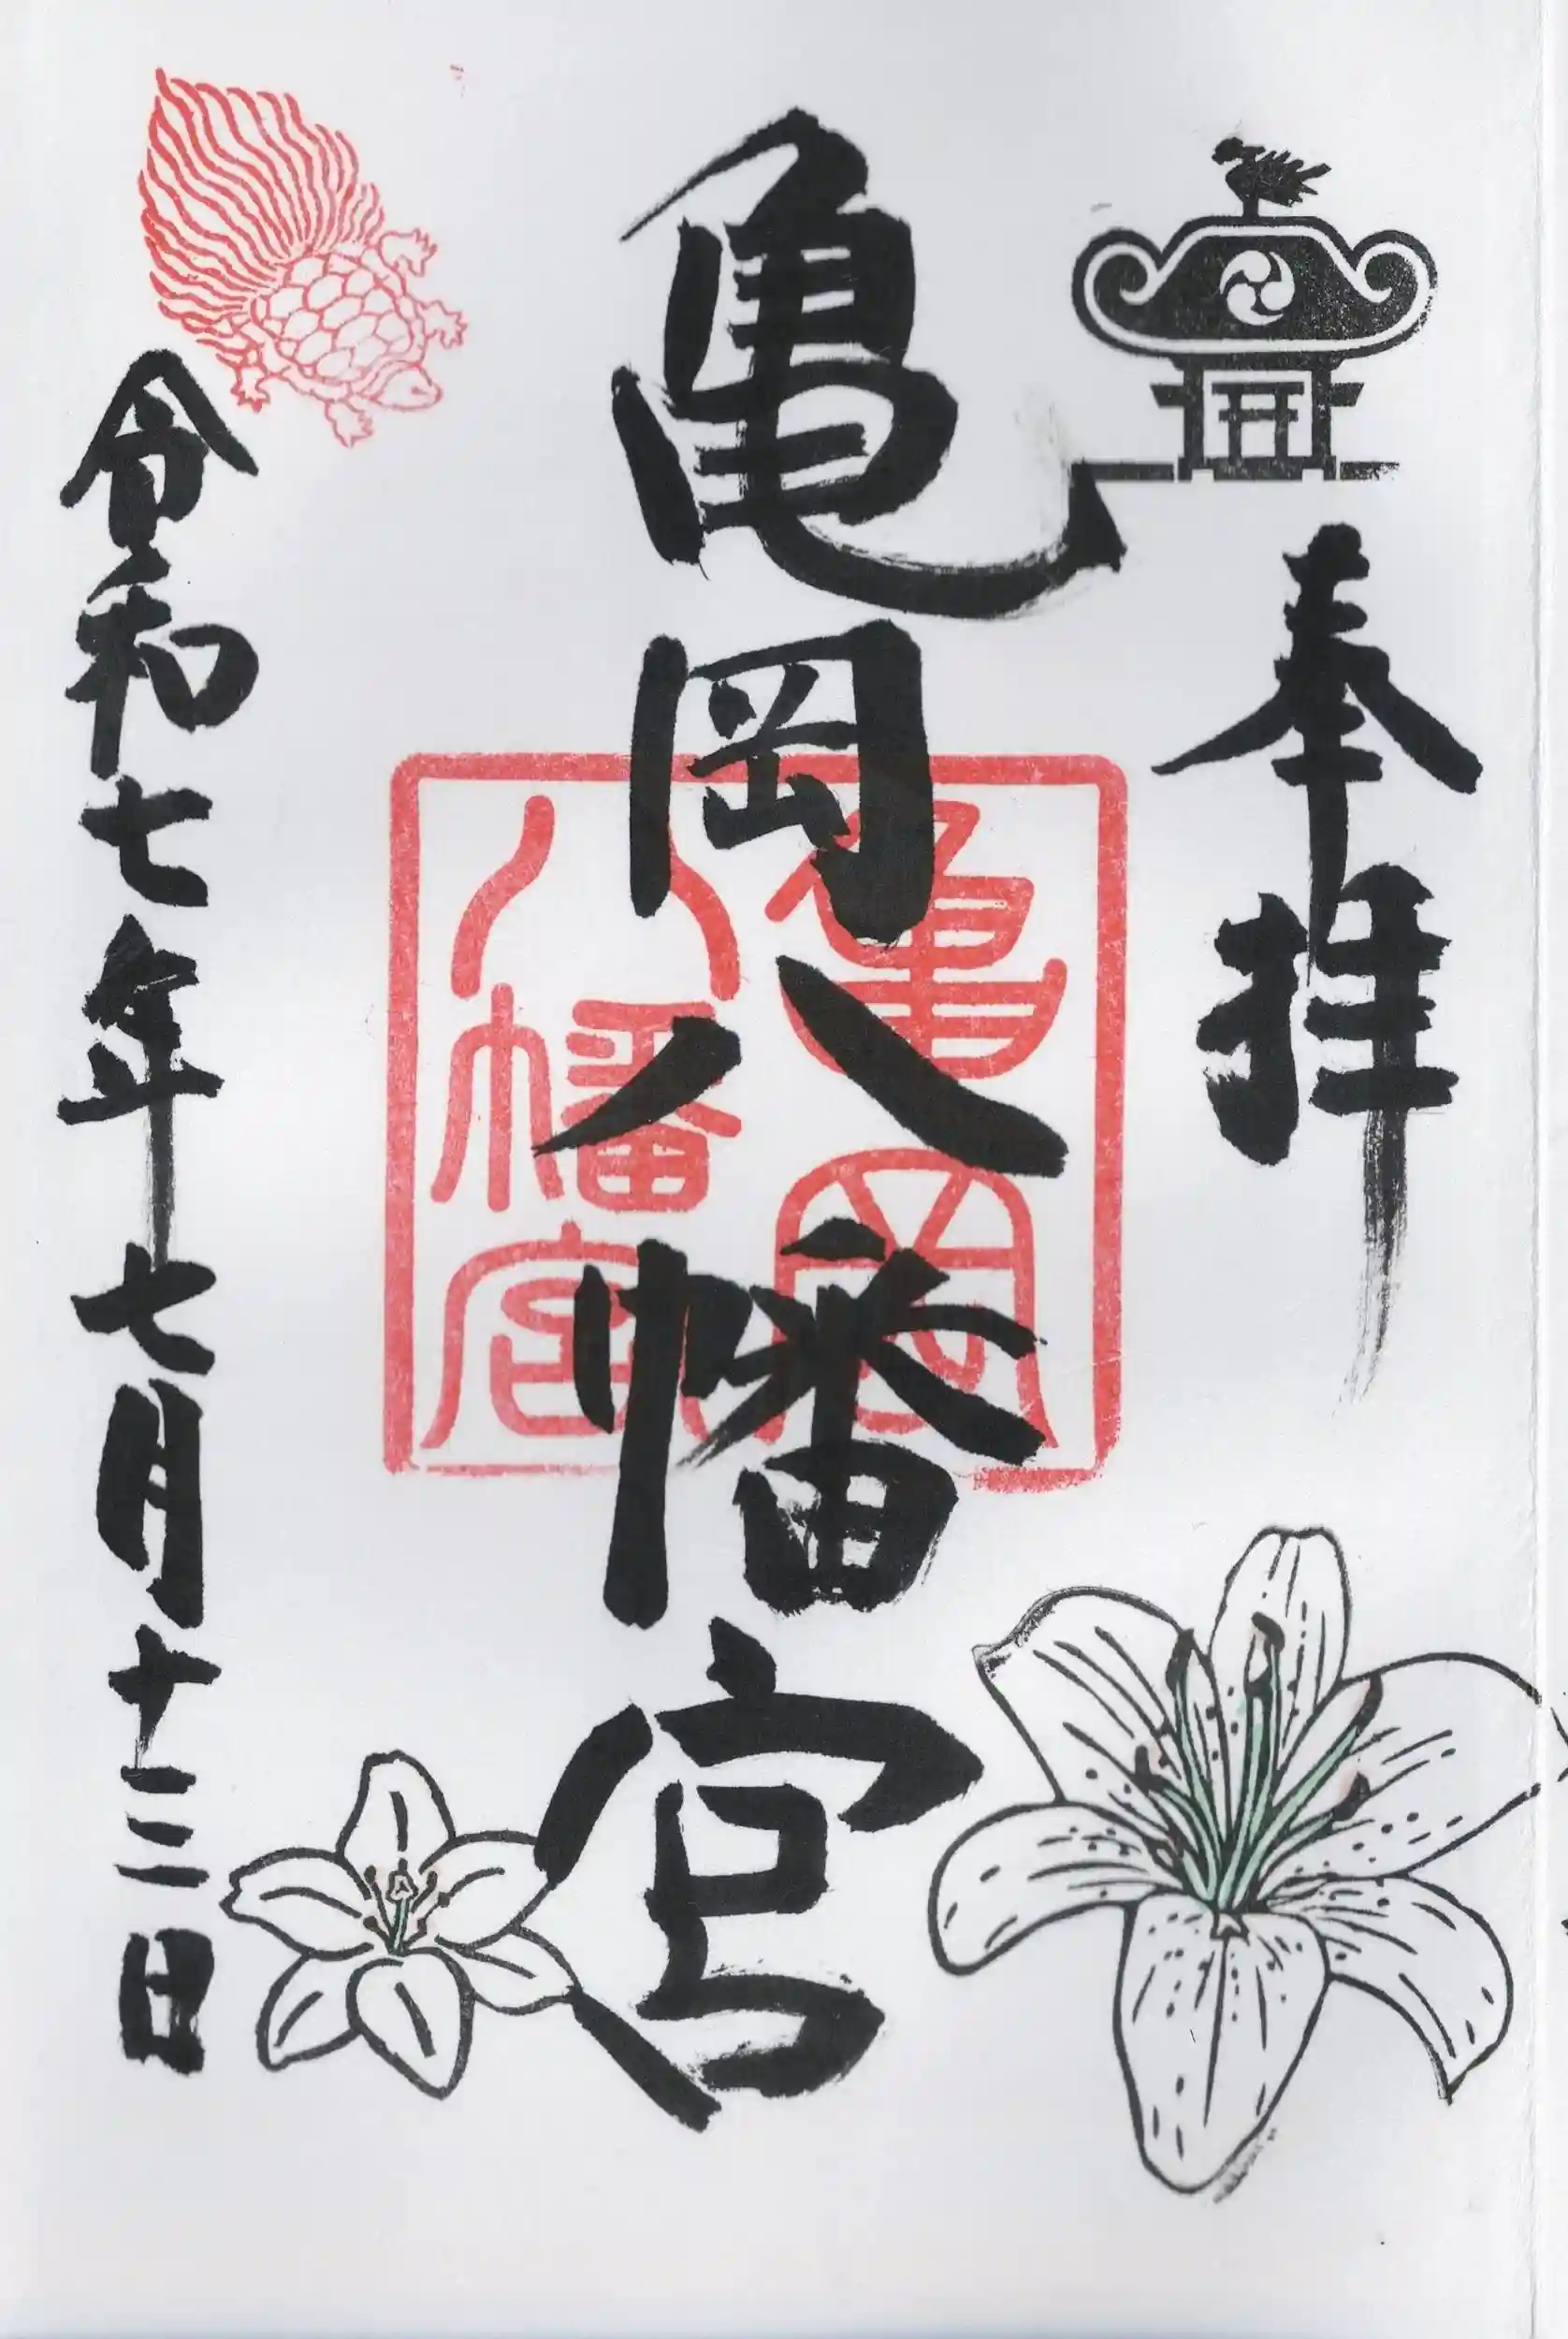 奉拝
亀岡八幡宮
亀岡
八幡宮
令和七年七月十三日